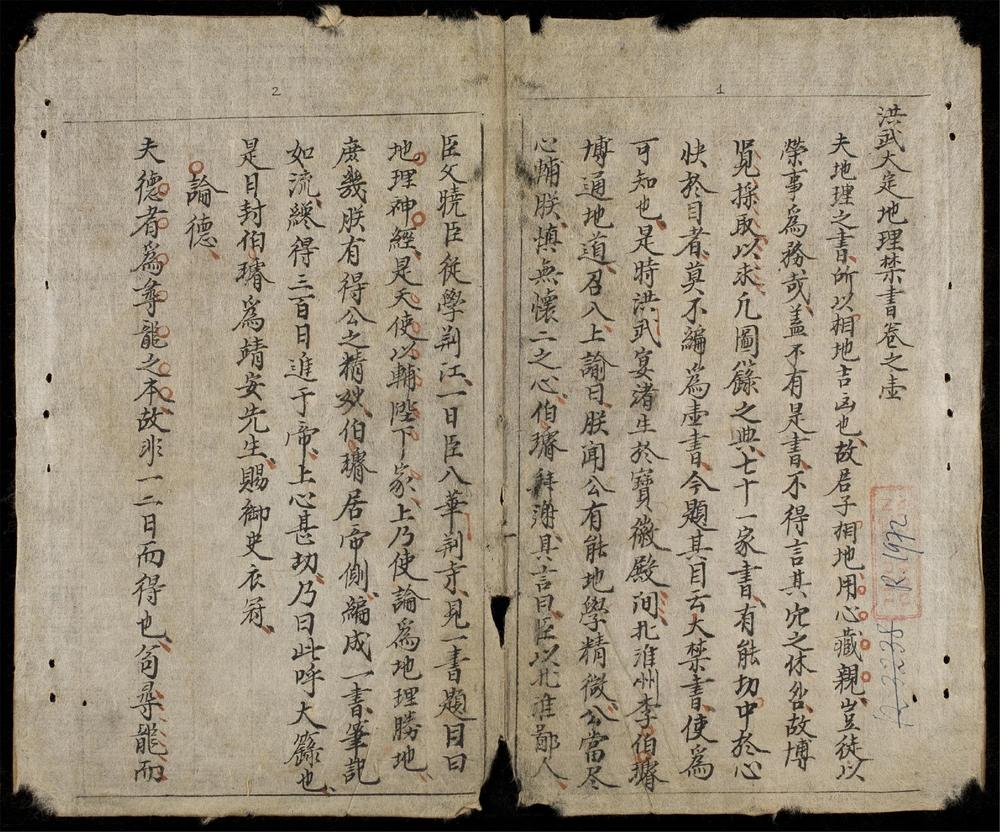 1
洪武大定地理禁書卷之壹
夫地理之書所以相地吉凶也故君子相地用心藏親豈徒以
榮事為務哉盖不有是書不得言其穴之休咎故博
覓採取以求凡圖籙之典七十一家書有能切中於心
快於目者莫不編為壹書今題其目云大禁書使為
可知也是時洪武宴渚生於寶徽殿间北淮州李伯璿
博通地道召入上諭曰朕闻公有能地學精微公當尽
心輔朕慎無懷二之心伯璿拜谢具言曰臣以北淮鄙人
R.1972
2
臣父曉臣従學荆江一日臣入華荆寺見一書題目曰
地理神經是天使以輔陛下家上乃使論為地理勝地
庶幾朕有得公之精妙伯璿居帝側編成一書筆記
如流纔得三百日進于帝上心甚切乃曰此呼大籙也
是日封伯璿為靖安先生賜御史衣冠
論德
夫德者為尋龍之本故非一二日而得也苟尋龍而